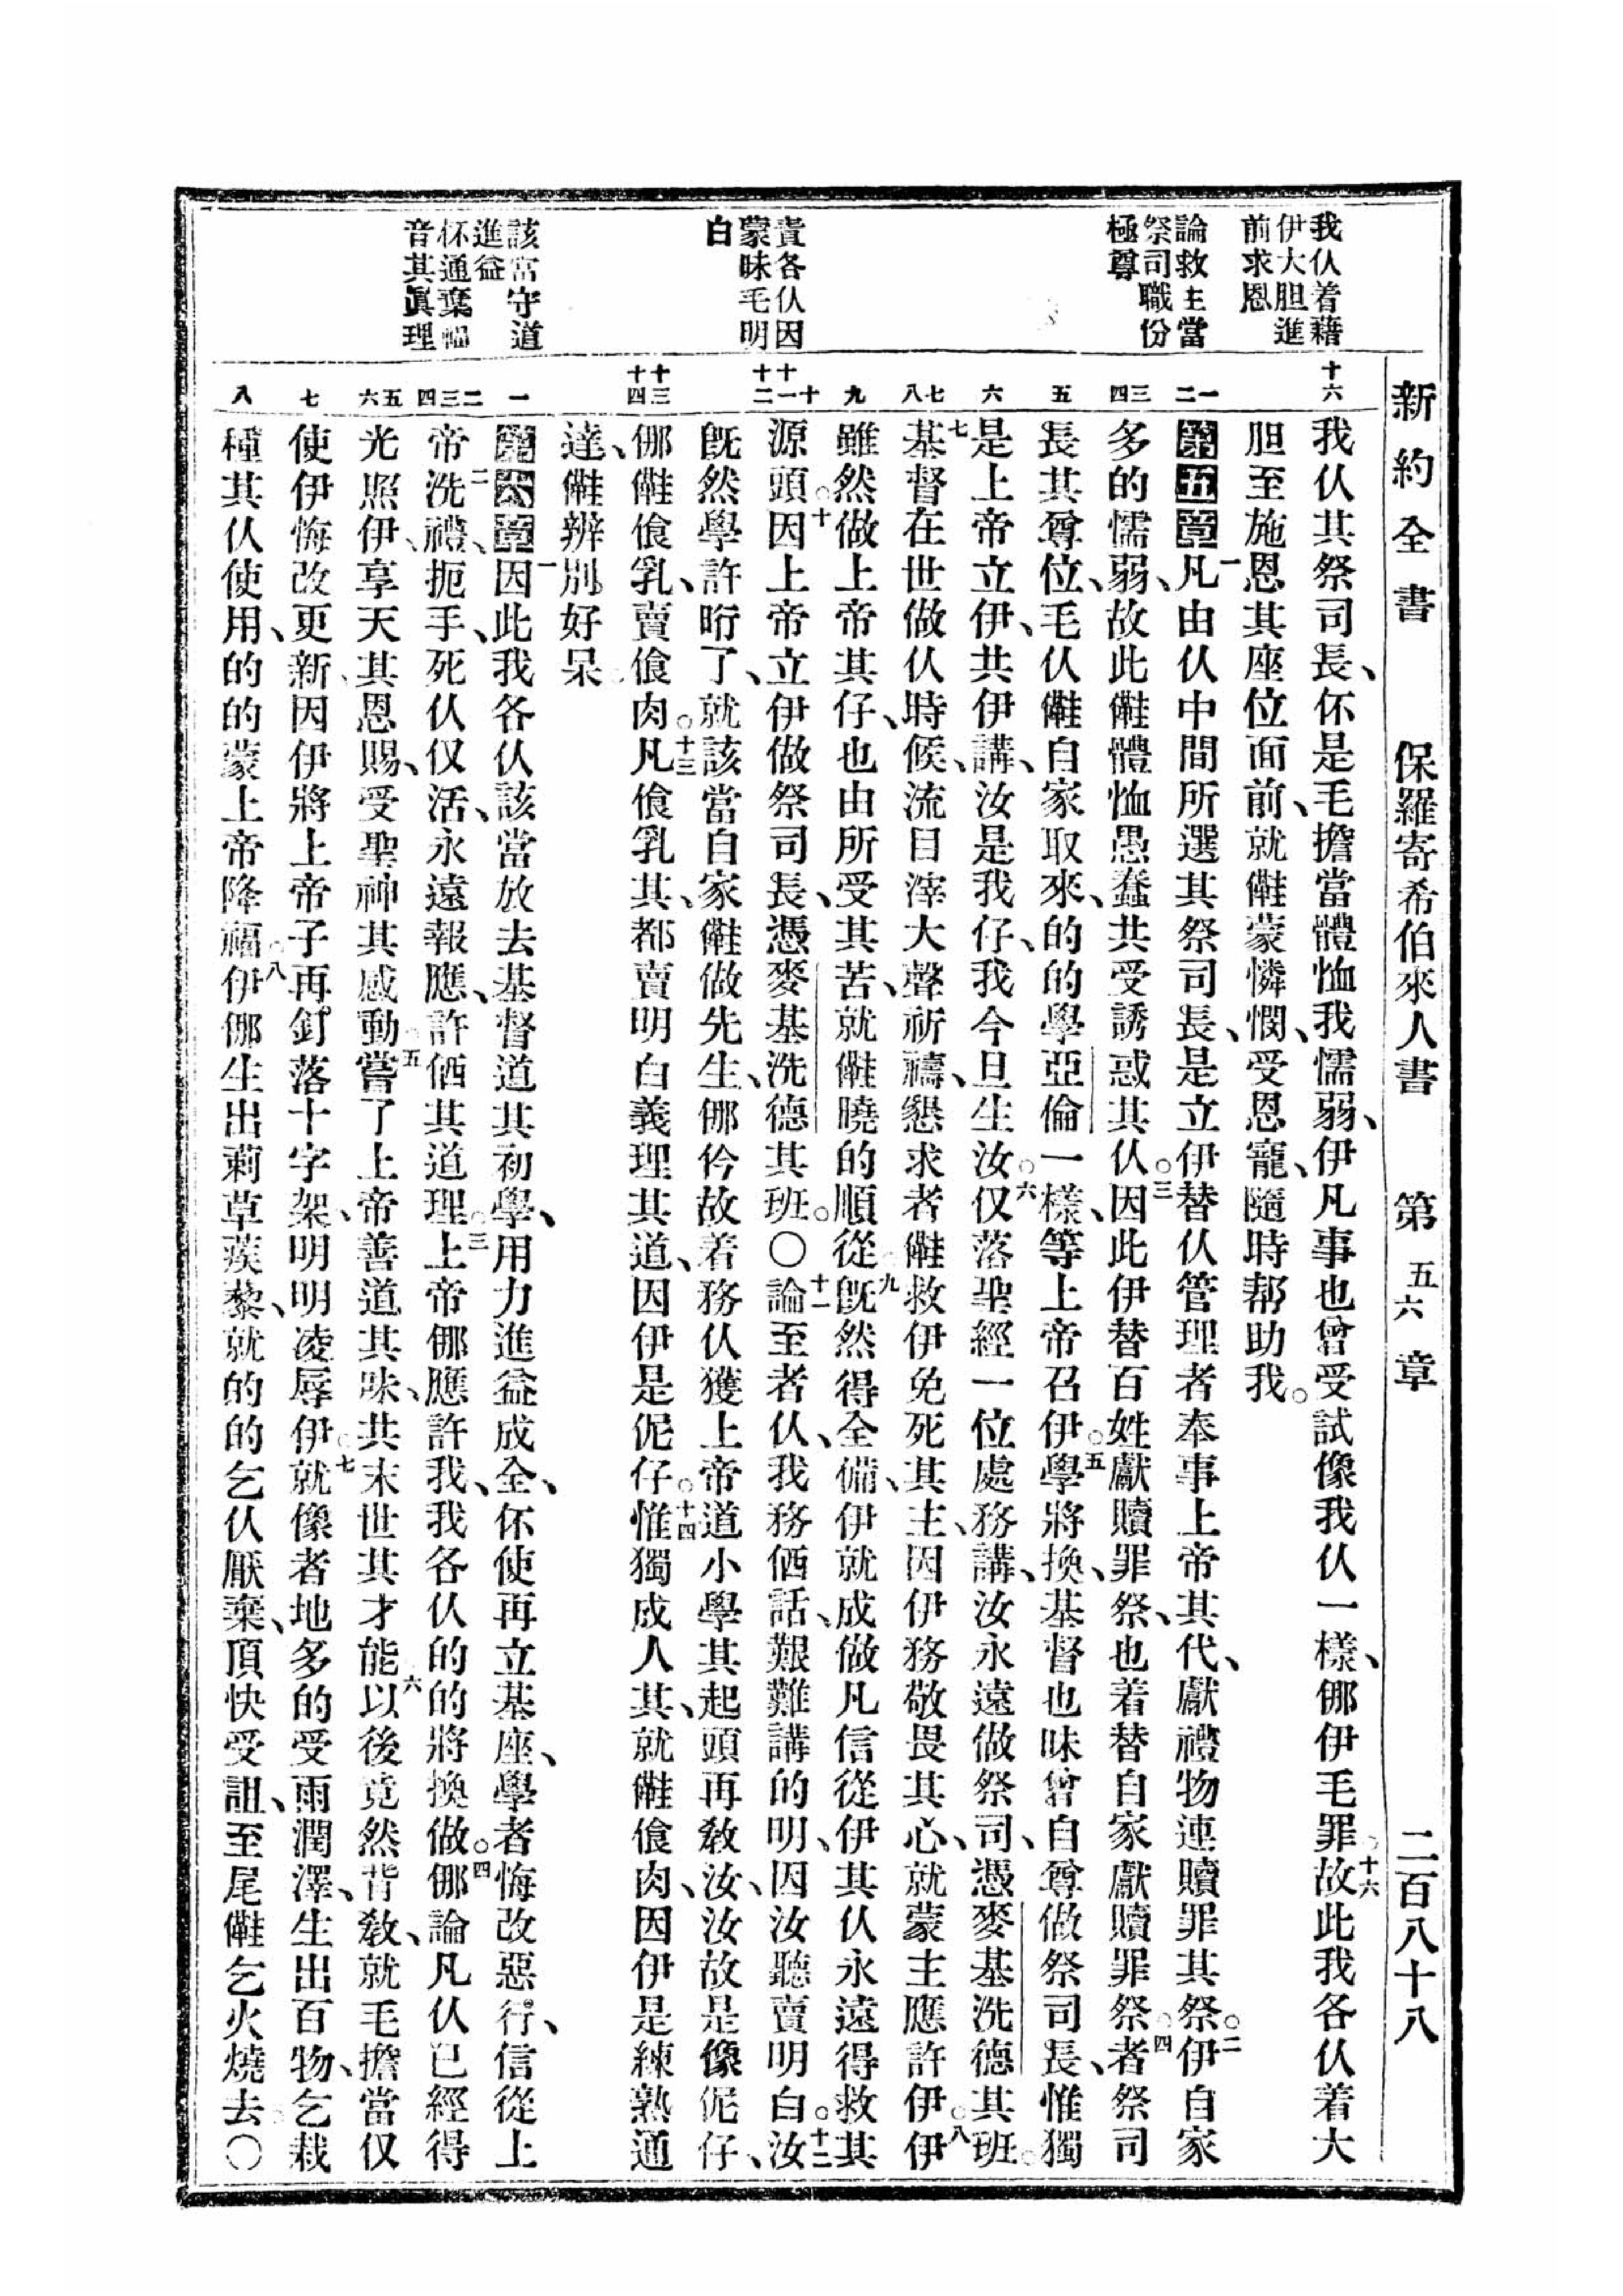 新約全書 保羅寄希伯來人書 第五六章 二百八十八
我仈着藉
伊大胆進
前求恩
論救主當
祭司職份
極尊
責各仈因
蒙昧毛明
白
該當守道
進益
伓通棄
音其眞理
十六
我仈其祭司長、伓是毛擔當體恤我懦弱、伊凡事也曾受試像我仈一樣、㑚伊毛罪○十六故此我各仈着大
胆至施恩其座位面前、就㒕蒙憐憫、受恩寵、隨時帮助我。
一二
第五章一凡由仈中間所選其祭司長、是立伊替仈管理者奉事上帝其代、獻禮物連贖罪其祭○二伊自家
三四
多的懦弱、故此㒕體恤愚蠢共受誘惑其仈○三因此伊替百姓獻贖罪祭、也着替自家獻贖罪祭○四者祭司
五
長其尊位、毛仈㒕自家取來、的的學亞倫一樣、等上帝召伊○五學將換、基督也昧曾自尊做祭司長、惟獨
六
是上帝立伊、共伊講、汝是我仔、我今旦生汝○六仅落聖經一位處務講、汝永遠做祭司、憑麥基洗德其班○
七八
七基督在世做仈時候、流目滓大聲祈禱、懇求者㒕救伊免死其主、因伊務敬畏其心、就蒙主應許伊○八伊
九
雖然做上帝其仔、也由所受其苦、就㒕曉的順從○九旣然得全備、伊就成做凡信從伊其仈永遠得救其
十十一十二
源頭○十因上帝立伊做祭司長、憑麥基洗德其班○〇十一論至者仈、我務㑻話、艱難講的明、因汝聽賣明白○十二汝
旣然學許昑了、就該當自家㒕做先生、㑚仱故着務仈獲上帝道小學其起頭再敎汝、汝故是像伲仔、
十三十四
㑚㒕飡乳、賣飡肉○十三凡飡乳其、都賣明白義理其道、因伊是伲仔○十四惟獨成人其、就㒕飡肉、因伊是練熟通
達、㒕辨別好呆○
一
第六章一因此我各仈該當放去基督道其初學、用力進益成全、伓使再立基座、學者悔改惡行、信從上
二三四
帝二洗禮、扼手、死仈仅活、永遠報應、許㑻其道理○三上帝㑚應許我、我各仈的的將換做○四㑚論凡仈已經得
五六
光照伊、享天其恩賜、受聖神其感動○五嘗了上帝善道其味、共末世其才能○六以後竟然背敎、就毛擔當仅
七
使伊悔改更新、因伊將上帝子再釘落十字架、明明凌辱伊○七就像者地多的受雨潤澤、生出百物、乞栽
八
種其仈使用、的的蒙上帝降福○八伊㑚生出莿草蒺藜、就的的乞仈厭棄、頂快受詛、至尾㒕乞火燒去○〇